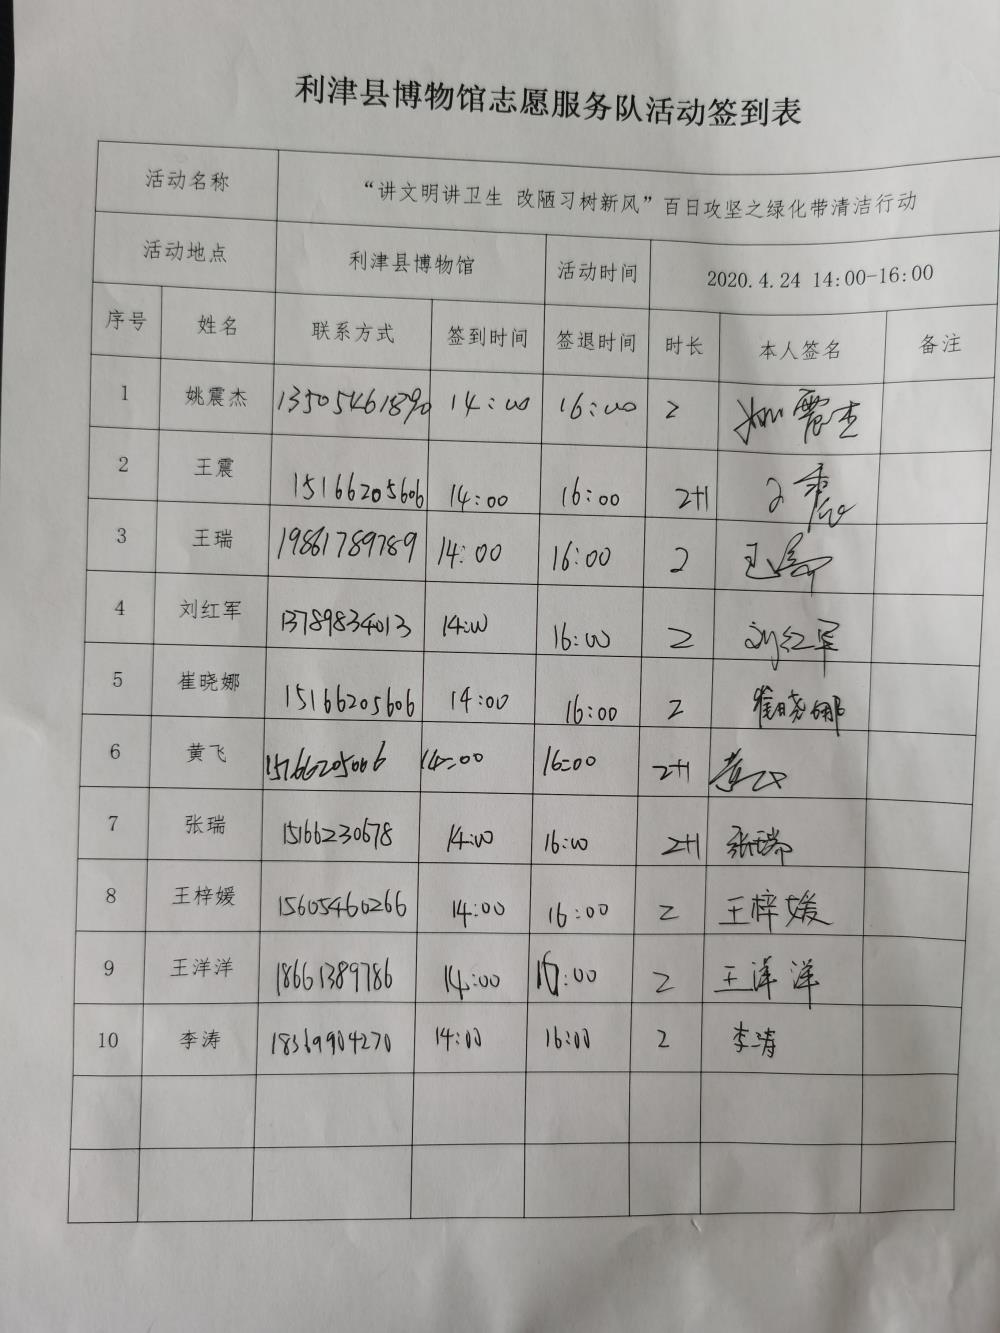 利津县博物馆志愿服务队活动签到表
活动名称 “讲文明讲卫生 改陋习树新风”百日攻坚之绿化带清洁行动
活动地点 利津县博物馆 活动时间 2020.4.24 14:00-16:00
序号 姓名 联系方式 签到时间 签退时间 时长 本人签名 备注
1 姚震杰 13505461890 14:00 16:00 2 姚震杰
2 王震 15166205606 14:00 16:00 2+1 王震
3 王瑞 19861789789 14:00 16:00 2 王瑞
4 刘红军 13789834013 14:00 16:00 2 刘红军
5 崔晓娜 15166205606 14:00 16:00 2 崔晓娜
6 黄飞 14:00 16:00 2+1 黄飞
7 张瑞 15166230678 14:00 16:00 2+1 张瑞
8 王梓媛 15605460266 14:00 16:00 2 王梓媛
9 王洋洋 18661389786 14:00 16:00 2 王洋洋
10 李涛 18369904270 14:00 16:00 2 李涛